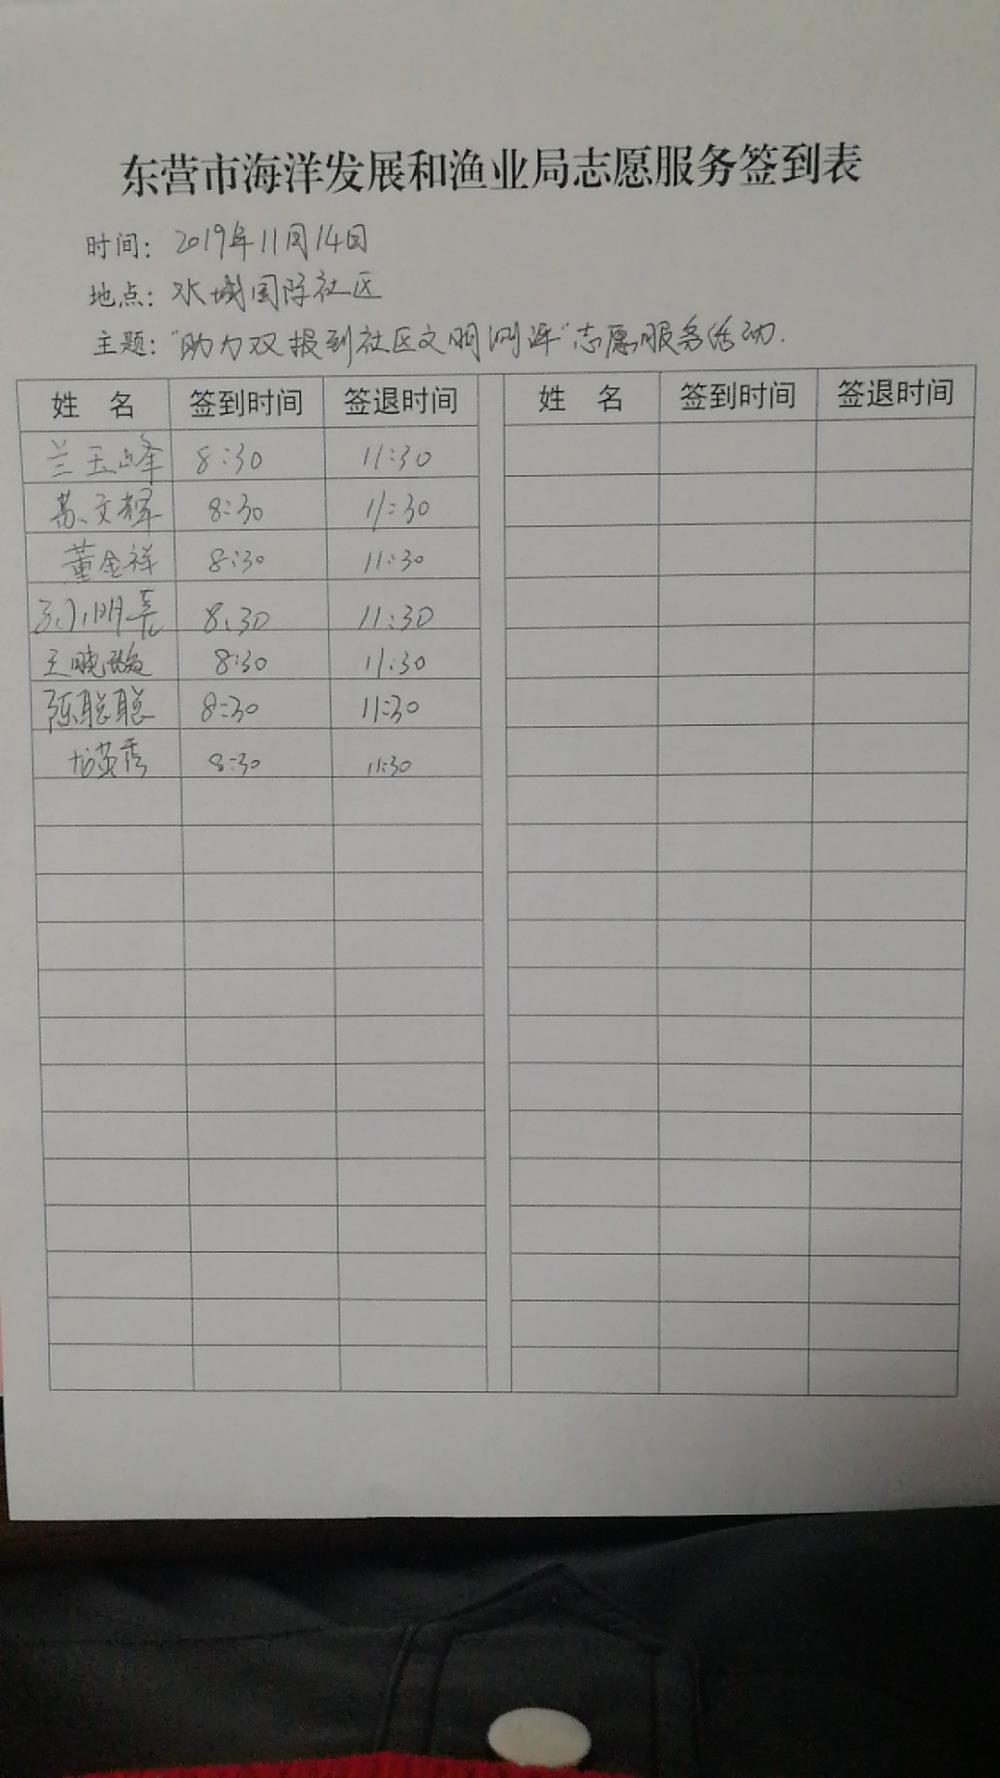 东营市海洋发展和渔业局志愿服务签到表
时间：2019年11月14日
地点：水城国际社区
主题：“助力双报到社区文明测评”志愿服务活动.
姓 名 签到时间 签退时间 姓 名 签到时间 签退时间
兰玉峰 8:30 11:30
苏文辉 8:30 11:30
董金祥 8:30 11:30
8:30 11:30
王晓 8:30 11:30
陈聪聪 8:30 11:30
英秀 8:30 11:30